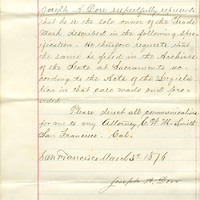 Joseph A. Dorr respectfully represents
that he is the sole owner of the Trade
Mark described in the following speci-
fication. He therefore requests that
the same be filed in the Archives
of the State at Sacramento ac-
cording to the Acts of the Legisla-
tion in that case made and pro-
vided.
Please direct all communications
for me to my Attorney, C. W. M. Smith,
San Francisco, Cal.
San Francisco March 3d 1876
Joseph A. Dorr